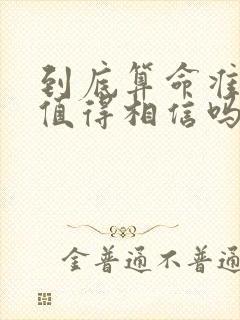 到底算命准
值得相信吗
金普通不普通